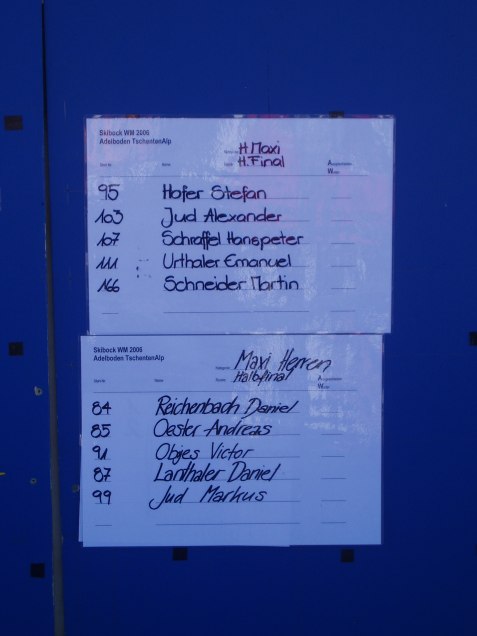 Skibock WM 2006
Adelboden TschentenAlp
H Maxi
H. Final
Start-Nr.
Name
95 Hofer Stefan
103 Jud Alexander
107 Schraffel Hanspeter
111 Urthaler Emanuel
166 Schneider Martin
Skibock WM 2006
Adelboden TschentenAlp
Maxi Herren
Halbfinal
Start-Nr.
Name
84 Reichenbach Daniel
85 Oesler Andreas
91 Objes Victor
87 Lanthaler Daniel
99 Jud Markus